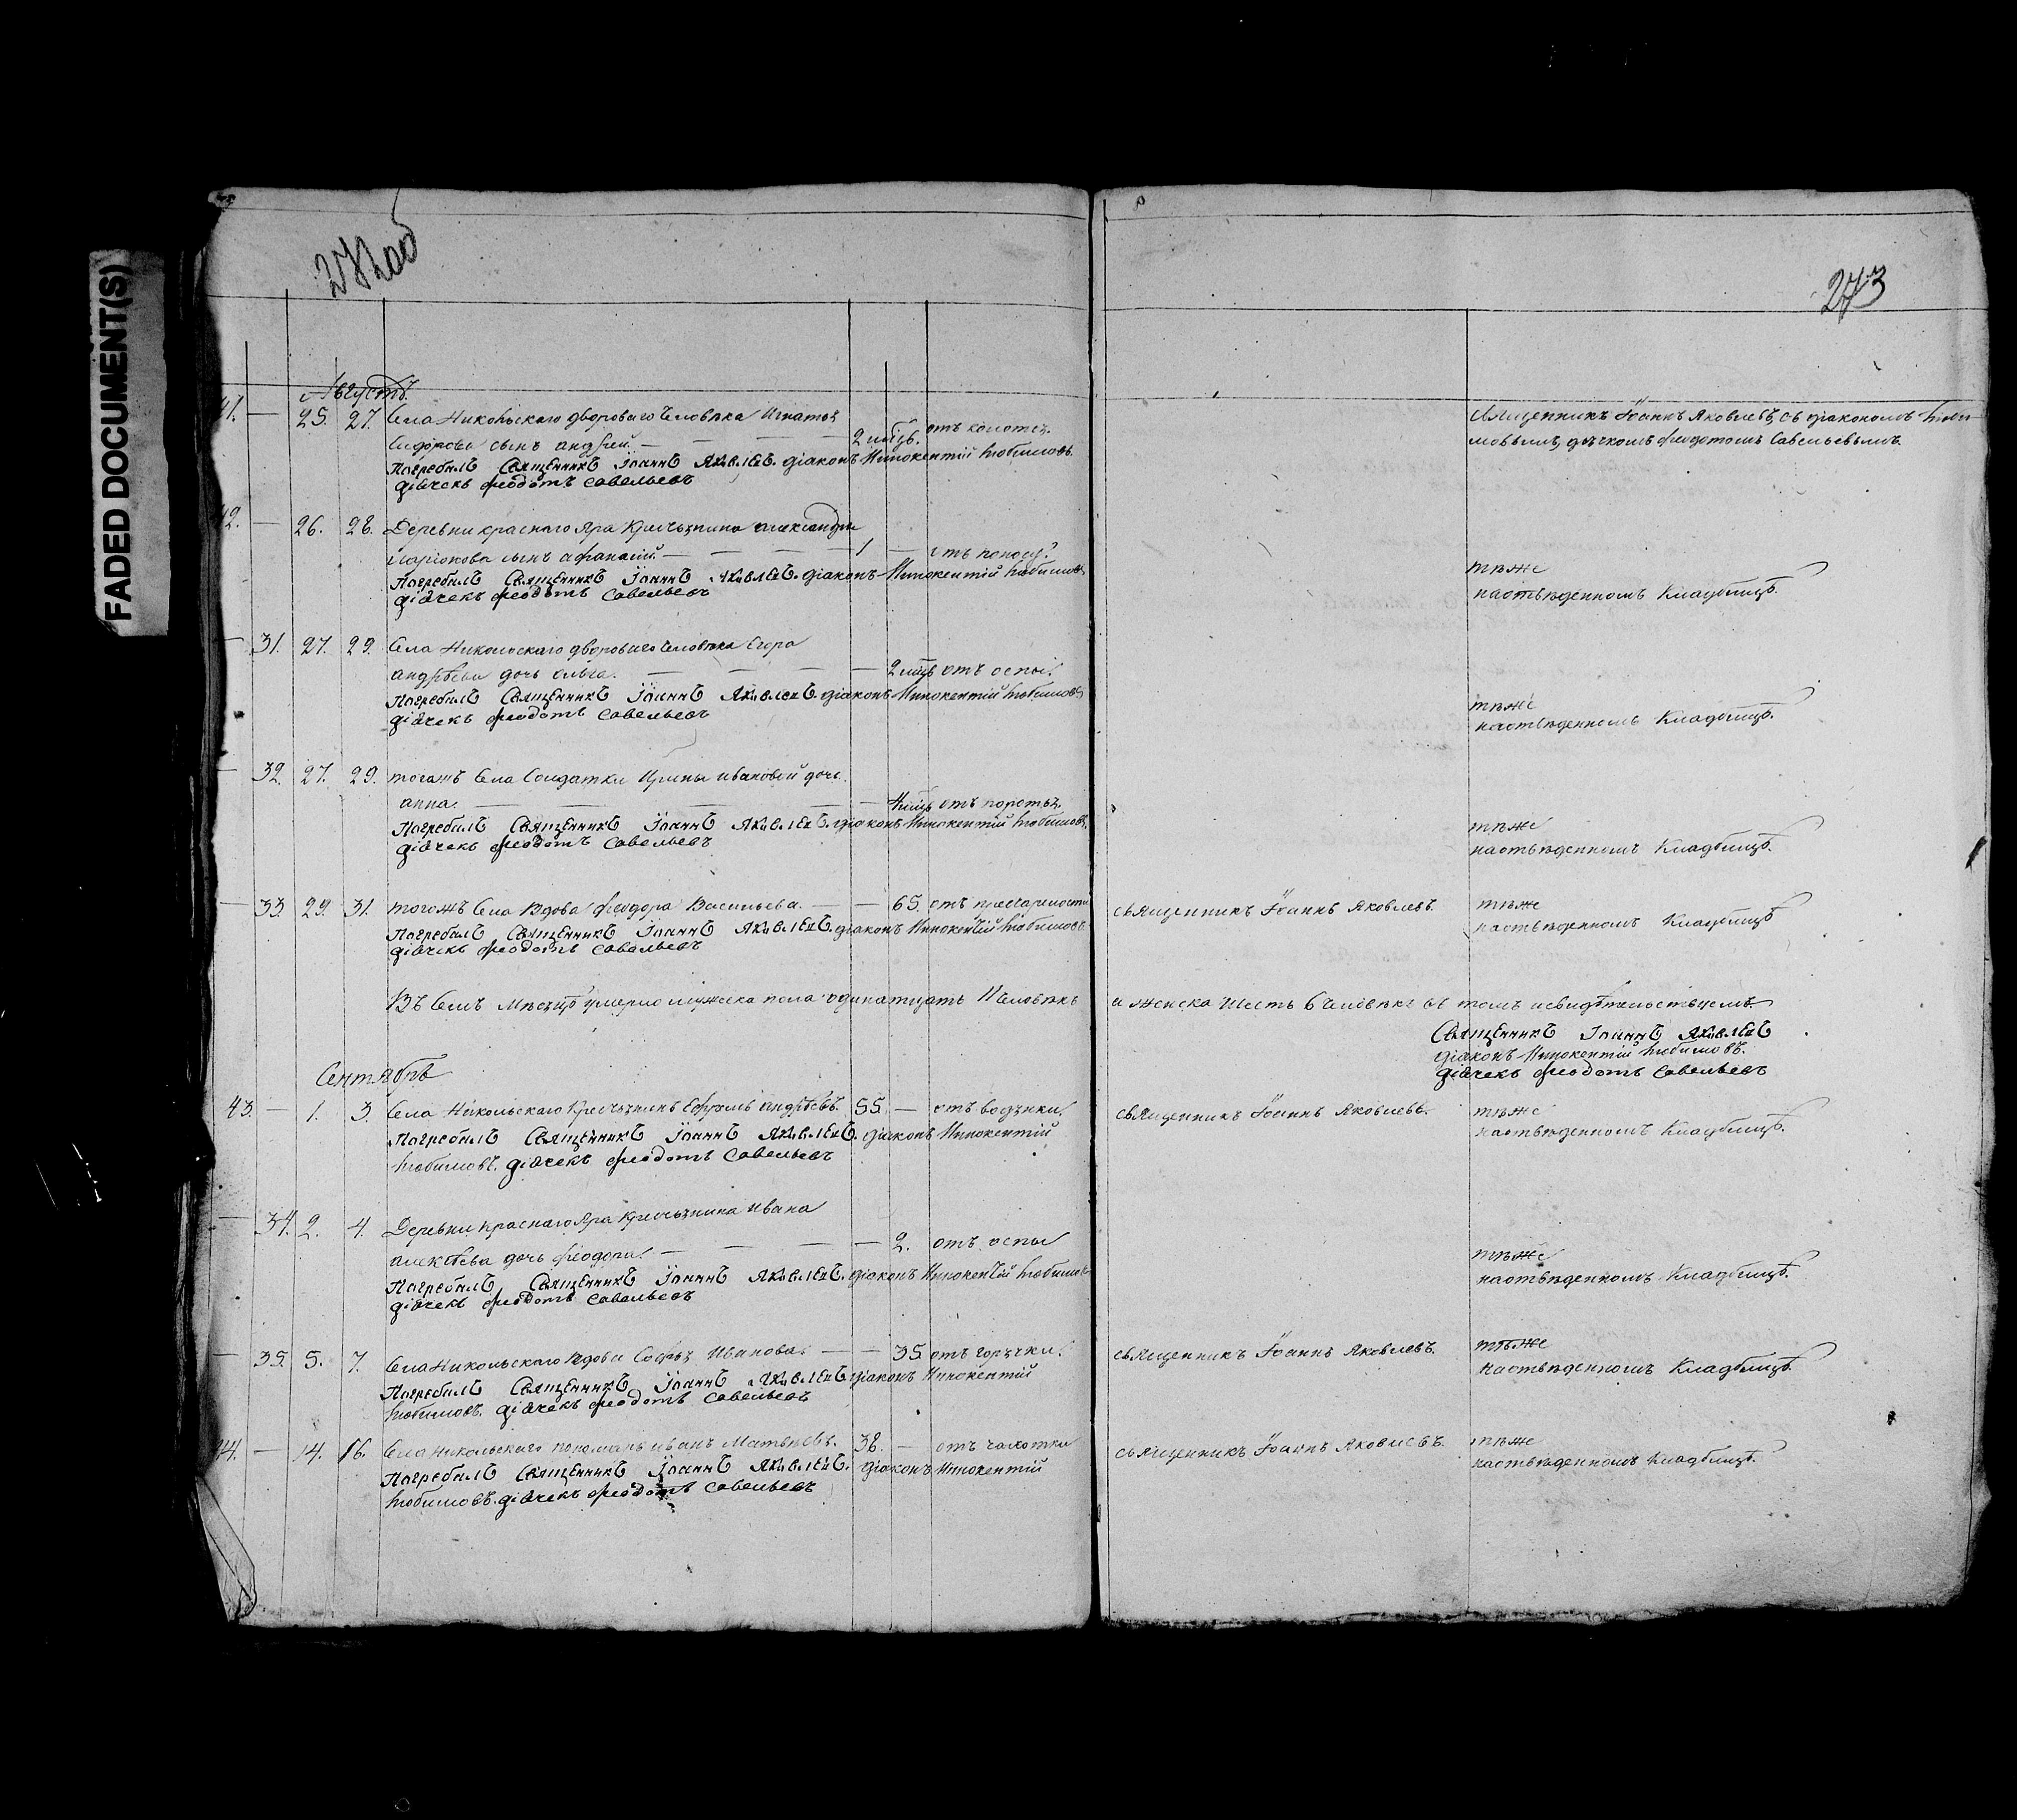 FADED DOCUMENT(S)
272 об
273
Августъ.
41. — 25. 27. Села Никольскаго двороваго человѣка Игнатья
Сидорова сынъ андрей. — — — — 2 мѣсц. отъ колотья.
Погребалъ Священникъ Іоаннъ Яковлевъ. діаконъ Иннокентій Любимовъ.
дьячекъ Ѳеодотъ Савельевъ
Священникъ Іоаннъ Яковлевъ, съ діакономъ Люби-
мовымъ, дьячкомъ Ѳеодотомъ Савельевымъ.
42. — 26. 28. Деревни краснаго Яра Крестьянина александра
Иларіонова сынъ афанасій. — — — — 1 — отъ поносу.
Погребалъ Священникъ Іоаннъ Яковлевъ. діаконъ Иннокентій Любимовъ
дьячекъ Ѳеодотъ Савельевъ
тѣже
на отведенномъ Кладбищѣ.
— 31. 27. 29. Села Никольскаго двороваго человѣка Егора
андрѣева дочь ольга. — — — — 2 мѣсц отъ оспы.
Погребалъ Священникъ Іоаннъ Яковлевъ. діаконъ Иннокентій Любимовъ
дьячекъ Ѳеодотъ Савельевъ
тѣже
на отведенномъ Кладбищѣ.
— 32. 27. 29. тогожъ Села Солдатки Ирины ивановой дочь
анна. — — — — — мѣсц отъ
Погребалъ Священникъ Іоаннъ Яковлевъ. діаконъ Иннокентій Любимовъ.
дьячекъ Ѳеодотъ Савельевъ
тѣже
на отведенномъ Кладбищѣ.
— 33. 29. 31. тогожъ Села Вдова Ѳеодора Васильева. — — 65. отъ престарелости
Погребалъ Священникъ Іоаннъ Яковлевъ. діаконъ Иннокентій Любимовъ
дьячекъ Ѳеодотъ Савельевъ
священникъ Іоаннъ Яковлевъ.
тѣже
на отведенномъ Кладбищѣ
Въ Семъ Мѣсяцѣ умерло мужска пола одинатцать 11 человѣкъ и женска Шесть 6 человѣкъ въ томъ и свидѣтельствуемъ.
Священникъ Іоаннъ Яковлевъ
діаконъ Иннокентій Любимовъ.
дьячекъ Ѳеодотъ Савельевъ
Сентябрь
43. — 1. 3. Села Никольскаго Крестьянинъ Ефремъ андрѣевъ. 55. — отъ водянки.
Погребалъ Священникъ Іоаннъ Яковлевъ. діаконъ Иннокентій
Любимовъ. дьячекъ Ѳеодотъ Савельевъ
священникъ Іоаннъ Яковлевъ.
тѣже
на отведенномъ Кладбищѣ.
— 34. 2. 4. Деревни краснаго Яра Крестьянина Ивана
алексѣева дочь Ѳеодора. — — — — 2. отъ оспы
Погребалъ Священникъ Іоаннъ Яковлевъ. діаконъ Иннокентій Любимовъ
дьячекъ Ѳеодотъ Савельевъ
тѣже
на отведенномъ Кладбищѣ.
— 35. 5. 7. Села Никольскаго вдова Софья Иванова. — — 35. отъ горячки.
Погребалъ Священникъ Іоаннъ Яковлевъ. діаконъ Иннокентій
Любимовъ. дьячекъ Ѳеодотъ Савельевъ
священникъ Іоаннъ Яковлевъ.
тѣже
на отведенномъ Кладбищѣ.
44. — 14. 16. Села Никольскаго пономарь иванъ Матвѣевъ. 38. — отъ чахотки
Погребалъ Священникъ Іоаннъ Яковлевъ. діаконъ Иннокентій
Любимовъ. дьячекъ Ѳеодотъ Савельевъ
священникъ Іоаннъ Яковлевъ.
тѣже
на отведенномъ Кладбищѣ.